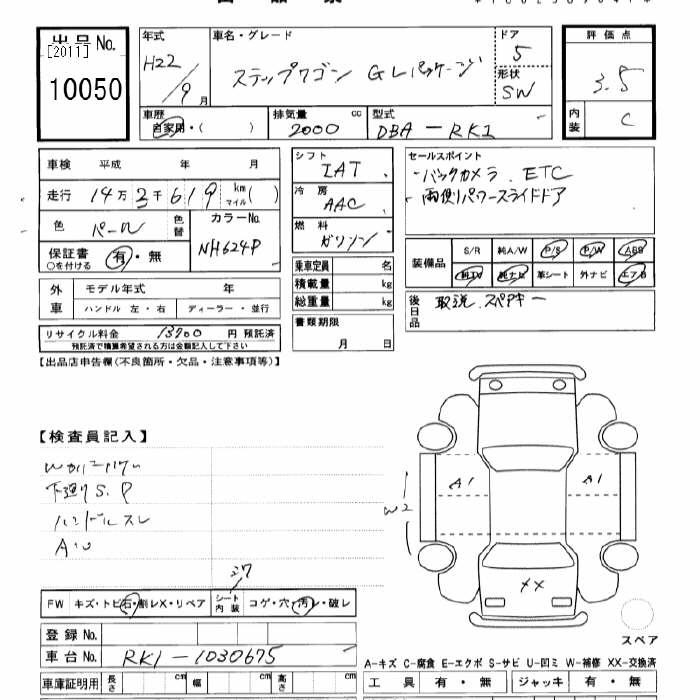 出品No.
[2011]
10050
年式
H22/9月
車名・グレード
ステップワゴン GLパッケージ
ドア 5
形状 SW
評価点
3.5
内装 C
車歴
自家用・( )
排気量 cc
2000
型式
DBA-RK1
車検 平成 年 月
走行 14万2千619 km マイル( )
色 パール 色替
カラーNo.
NH624P
保証書 有・無
○を付ける
外車 モデル年式 年
ハンドル 左・右 ディーラー・並行
リサイクル料金 13900 円 預託済
預託済で積算希望される方は金額記入して下さい
シフト
IAT
冷房
AAC
燃料
ガソリン
乗車定員 名
積載量 kg
総重量 kg
書類期限
月 日
セールスポイント
・バックカメラ、ETC
・両側パワースライドドア
装備品 S/R 純A/W P/S P/W ABS
純TV 純ナビ 革シート 外ナビ エアB
後日品 取説、スペアキー
【出品店申告欄(不良箇所・欠品・注意事項等)】
【検査員記入】
下廻りS、P
ハンドルスレ
A1
A1
W2
XX
スペア
FW キズ・トビ石・割レX・リペア シート内装 コゲ・穴・汚レ・破レ
登録No.
車台No. RK1-1030675
A-キズ C-腐食 E-エクボ S-サビ U-凹ミ W-補修 XX-交換済
車庫証明用 長さ cm 幅 cm 高さ cm
工具 有・無 ジャッキ 有・無